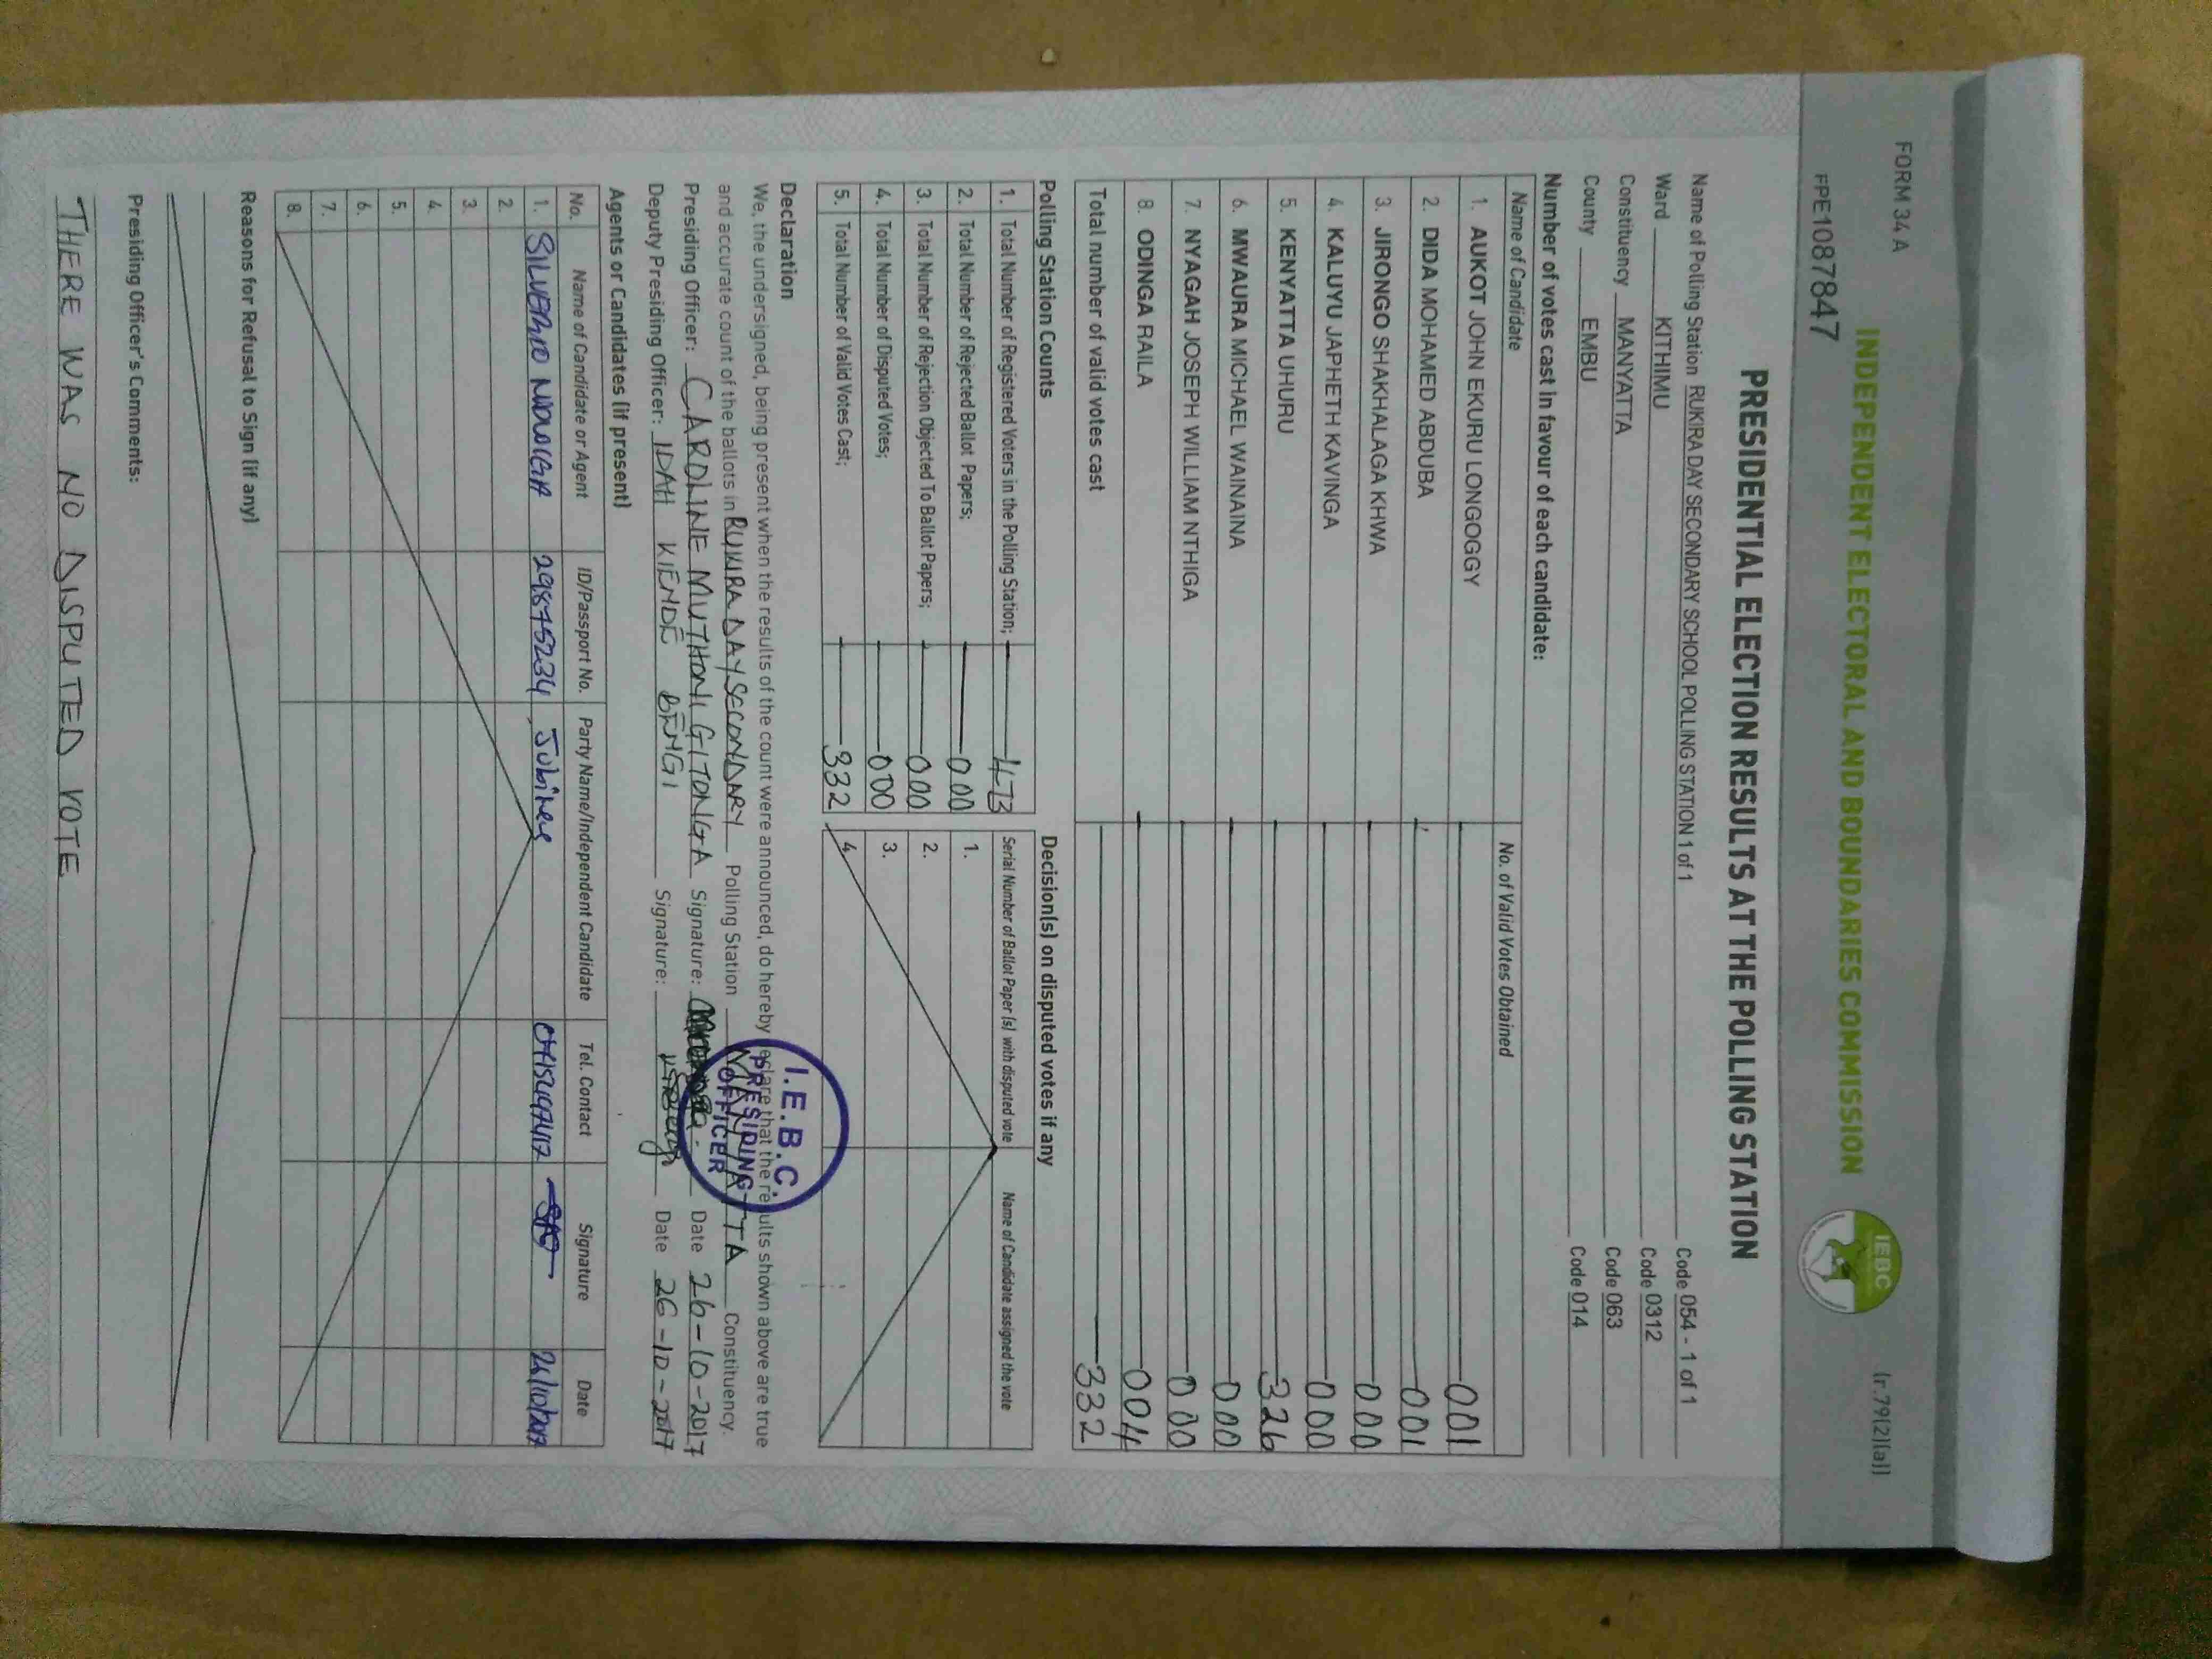 FORM 34 A
(r.79(2)(a))
FPE1087847
INDEPENDENT ELECTORAL AND BOUNDARIES COMMISSION
IEBC
PRESIDENTIAL ELECTION RESULTS AT THE POLLING STATION
Name of Polling Station RUKIRA DAY SECONDARY SCHOOL POLLING STATION 1 of 1 Code 054 - 1 of 1
Ward KITHIMU Code 0312
Constituency MANYATTA Code 063
County EMBU Code 014
Number of votes cast in favour of each candidate:
Name of Candidate No. of Valid Votes Obtained
1. AUKOT JOHN EKURU LONGOGGY 001
2. DIDA MOHAMED ABDUBA 001
3. JIRONGO SHAKHALAGA KHWA 000
4. KALUYU JAPHETH KAVINGA 000
5. KENYATTA UHURU 326
6. MWAURA MICHAEL WAINAINA 000
7. NYAGAH JOSEPH WILLIAM NTHIGA 000
8. ODINGA RAILA 004
Total number of valid votes cast 332
Polling Station Counts
1. Total Number of Registered Voters in the Polling Station; 473
2. Total Number of Rejected Ballot Papers; 000
3. Total Number of Rejection Objected To Ballot Papers; 000
4. Total Number of Disputed Votes; 000
5. Total Number of Valid Votes Cast; 332
Decision(s) on disputed votes if any
Serial Number of Ballot Paper (s) with disputed vote Name of Candidate assigned the vote
1.
2.
3.
4.
Declaration
We, the undersigned, being present when the results of the count were announced, do hereby declare that the results shown above are true
and accurate count of the ballots in RUKIRA DAY SECONDARY Polling Station MANYATTA Constituency.
Presiding Officer: CAROLINE MUTHONI GITONGA Signature: Date 26-10-2017
Deputy Presiding Officer: IDAH KIENDE BENGI Signature: Date 26-10-2017
I.E.B.C.
PRESIDING
OFFICER
Agents or Candidates (if present)
No. Name of Candidate or Agent ID/Passport No. Party Name/Independent Candidate Tel. Contact Signature Date
1. 29875234 Jubilee 26/10/2017
2.
3.
4.
5.
6.
7.
8.
Reasons for Refusal to Sign (if any)
Presiding Officer's Comments:
THERE WAS NO DISPUTED VOTE